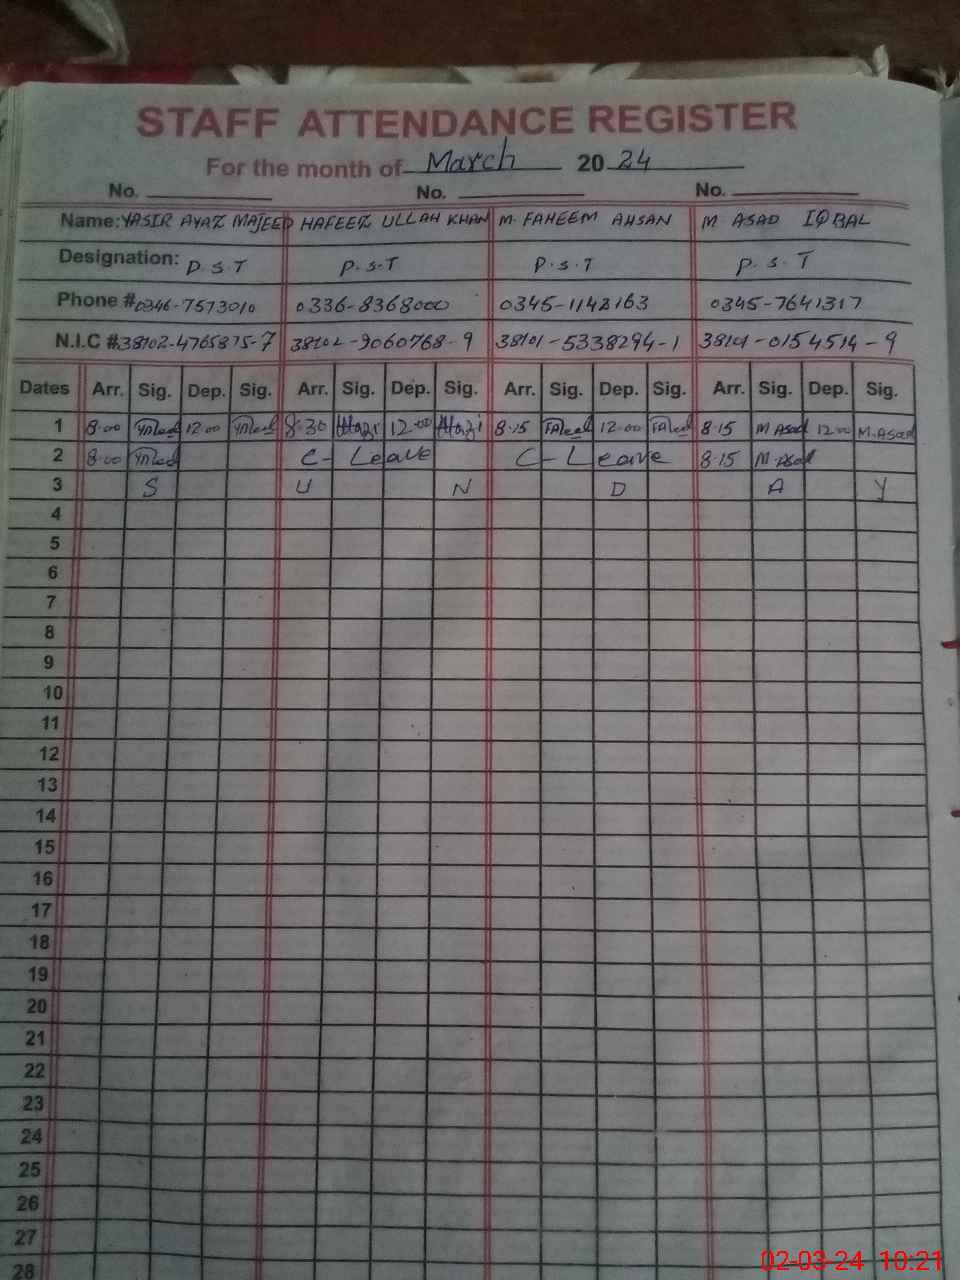 STAFF ATTENDANCE REGISTER
For the month of March 20 24
No. No. No.
Name: YASIR AYAZ MAJEED HAFEEZ ULLAH KHAN M. FAHEEM AHSAN M ASAD IQBAL
Designation: P.S.T P.S.T P.S.T P.S.T
Phone # 0346-7573010 0336-8368000 0345-1142163 0345-7641317
N.I.C #. 38102-4765875-7 38102-9060768-9 38101-5338294-1 38101-0154514-9
Dates Arr. Sig. Dep. Sig. Arr. Sig. Dep. Sig. Arr. Sig. Dep. Sig. Arr. Sig. Dep. Sig.
1 8.00 12.00 8.30 12.00 8.15 12.00 8.15 M Asad 12.00 M.Asad
2 8.00 C- Leave C- Leave 8.15 M.Asad
3 S U N D A Y
4
5
6
7
8
9
10
11
12
13
14
15
16
17
18
19
20
21
22
23
24
25
26
27
28
02-03-24 10:21